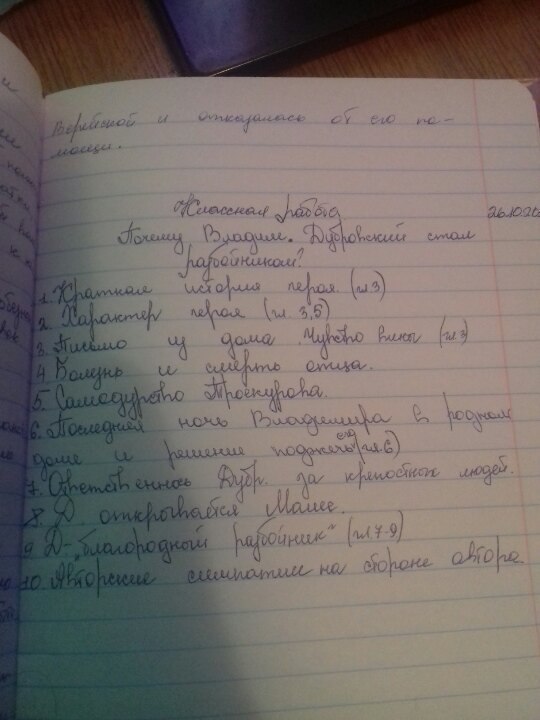 Верейской и отказалась от его по-
мощи.
Классная работа 26.10.20
Почему Владим. Дубровский стал
разбойником?
1. Краткая история героя (гл 3)
2. Характер героя (гл. 3,5)
3. Письмо из дома. Чувство вины (гл 3)
4 Болезнь и смерть отца.
5. Самодурство Троекурова.
6. Последняя ночь Владимира в родном
доме и решение поджечь его (гл. 6)
7. Ответственность Дубр. за крепостных людей.
8. Д. открывается Маше.
9 Д- "благородный разбойник" (гл 7-9)
10. Авторские симпатии на стороне автора